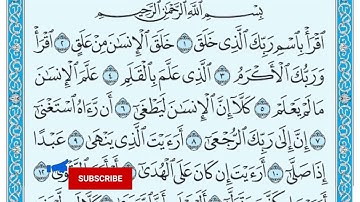 بِسْمِ اللَّهِ الرَّحْمَٰنِ الرَّحِيمِ
اقْرَأْ بِاسْمِ رَبِّكَ الَّذِي خَلَقَ ١ خَلَقَ الْإِنسَانَ مِنْ عَلَقٍ ٢ اقْرَأْ
وَرَبُّكَ الْأَكْرَمُ ٣ الَّذِي عَلَّمَ بِالْقَلَمِ ٤ عَلَّمَ الْإِنسَانَ
مَا لَمْ يَعْلَمْ ٥ كَلَّا إِنَّ الْإِنسَانَ لَيَطْغَىٰ ٦ أَن رَّآهُ اسْتَغْنَىٰ
٧ إِنَّ إِلَىٰ رَبِّكَ الرُّجْعَىٰ ٨ أَرَأَيْتَ الَّذِي يَنْهَىٰ ٩ عَبْدًا
إِذَا صَلَّىٰ ١٠ أَرَأَيْتَ إِن كَانَ عَلَى الْهُدَىٰ ١١ أَوْ أَمَرَ بِالتَّقْوَىٰ ١٢
SUBSCRIBE